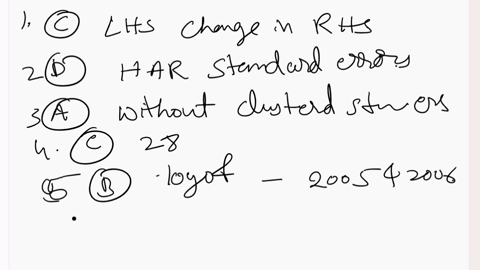 1. C LHS change in RHS
2. D HAR Standard errors
3 A without clusterd
4. C 28
5 B logof – 2005 & 2006